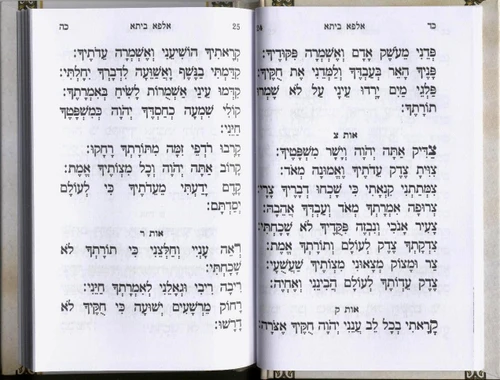 כד אלפא ביתא 24
פְּדֵנִי מֵעֹשֶׁק אָדָם וְאֶשְׁמְרָה פִּקּוּדֶיךָ:
פָּנֶיךָ הָאֵר בְּעַבְדֶּךָ וְלַמְּדֵנִי אֶת חֻקֶּיךָ:
פַּלְגֵי מַיִם יָרְדוּ עֵינָי עַל לֹא שָׁמְרוּ
תוֹרָתֶךָ:
אות צ
צַדִּיק אַתָּה יְהֹוָה וְיָשָׁר מִשְׁפָּטֶיךָ:
צִוִּיתָ צֶדֶק עֵדֹתֶיךָ וֶאֱמוּנָה מְאֹד:
צִמְּתַתְנִי קִנְאָתִי כִּי שָׁכְחוּ דְבָרֶיךָ צָרָי:
צְרוּפָה אִמְרָתְךָ מְאֹד וְעַבְדְּךָ אֲהֵבָהּ:
צָעִיר אָנֹכִי וְנִבְזֶה פִּקֻּדֶיךָ לֹא שָׁכָחְתִּי:
צִדְקָתְךָ צֶדֶק לְעוֹלָם וְתוֹרָתְךָ אֱמֶת:
צַר וּמָצוֹק מְצָאוּנִי מִצְוֹתֶיךָ שַׁעֲשֻׁעָי:
צֶדֶק עֵדְוֹתֶיךָ לְעוֹלָם הֲבִינֵנִי וְאֶחְיֶה:
אות ק
קָרָאתִי בְכָל לֵב עֲנֵנִי יְהֹוָה חֻקֶּיךָ אֶצֹּרָה:
כה אלפא ביתא 25
קְרָאתִיךָ הוֹשִׁיעֵנִי וְאֶשְׁמְרָה עֵדֹתֶיךָ:
קִדַּמְתִּי בַנֶּשֶׁף וָאֲשַׁוֵּעָה לִדְבָרְךָ יִחָלְתִּי:
קִדְּמוּ עֵינַי אַשְׁמֻרוֹת לָשִׂיחַ בְּאִמְרָתֶךָ:
קוֹלִי שִׁמְעָה כְחַסְדֶּךָ יְהֹוָה כְּמִשְׁפָּטֶךָ
חַיֵּנִי:
קָרְבוּ רֹדְפֵי זִמָּה מִתּוֹרָתְךָ רָחָקוּ:
קָרוֹב אַתָּה יְהֹוָה וְכָל מִצְוֹתֶיךָ אֱמֶת:
קֶדֶם יָדַעְתִּי מֵעֵדֹתֶיךָ כִּי לְעוֹלָם
יְסַדְתָּם:
אות ר
רְאֵה עָנְיִי וְחַלְּצֵנִי כִּי תוֹרָתְךָ לֹא
שָׁכָחְתִּי:
רִיבָה רִיבִי וּגְאָלֵנִי לְאִמְרָתְךָ חַיֵּנִי:
רָחוֹק מֵרְשָׁעִים יְשׁוּעָה כִּי חֻקֶּיךָ לֹא
דָרָשׁוּ: